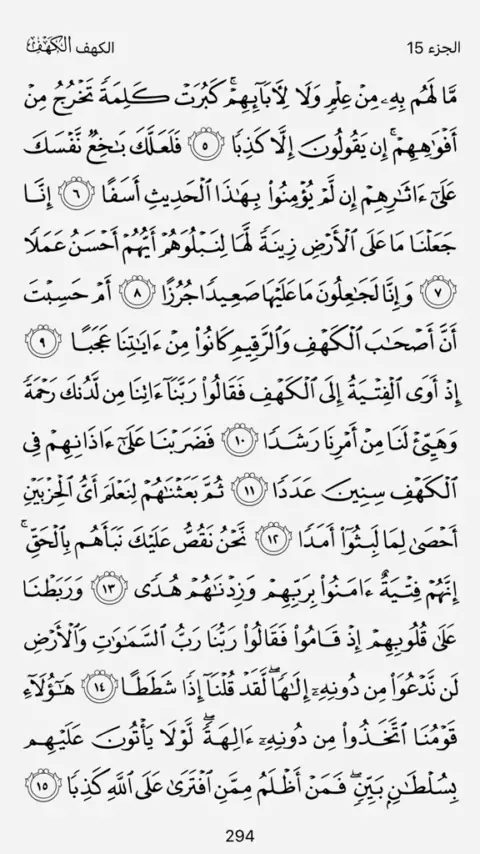 الجزء 15
الكهف الكهف
مَّا لَهُم بِهِۦ مِنْ عِلْمٍ وَلَا لِأٓبَآئِهِمْ ۚ كَبُرَتْ كَلِمَةً تَخْرُجُ مِنْ
أَفْوَٰهِهِمْ ۚ إِن يَقُولُونَ إِلَّا كَذِبًا ٥ فَلَعَلَّكَ بَٰخِعٌ نَّفْسَكَ
عَلَىٰٓ ءَاثَٰرِهِمْ إِن لَّمْ يُؤْمِنُوا۟ بِهَٰذَا ٱلْحَدِيثِ أَسَفًا ٦ إِنَّا
جَعَلْنَا مَا عَلَى ٱلْأَرْضِ زِينَةً لَّهَا لِنَبْلُوَهُمْ أَيُّهُمْ أَحْسَنُ عَمَلًا
٧ وَإِنَّا لَجَٰعِلُونَ مَا عَلَيْهَا صَعِيدًا جُرُزًا ٨ أَمْ حَسِبْتَ
أَنَّ أَصْحَٰبَ ٱلْكَهْفِ وَٱلرَّقِيمِ كَانُوا۟ مِنْ ءَايَٰتِنَا عَجَبًا ٩
إِذْ أَوَى ٱلْفِتْيَةُ إِلَى ٱلْكَهْفِ فَقَالُوا۟ رَبَّنَآ ءَاتِنَا مِن لَّدُنكَ رَحْمَةً
وَهَيِّئْ لَنَا مِنْ أَمْرِنَا رَشَدًا ١٠ فَضَرَبْنَا عَلَىٰٓ ءَاذَانِهِمْ فِى
ٱلْكَهْفِ سِنِينَ عَدَدًا ١١ ثُمَّ بَعَثْنَٰهُمْ لِنَعْلَمَ أَىُّ ٱلْحِزْبَيْنِ
أَحْصَىٰ لِمَا لَبِثُوٓا۟ أَمَدًا ١٢ نَّحْنُ نَقُصُّ عَلَيْكَ نَبَأَهُم بِٱلْحَقِّ ۚ
إِنَّهُمْ فِتْيَةٌ ءَامَنُوا۟ بِرَبِّهِمْ وَزِدْنَٰهُمْ هُدًى ١٣ وَرَبَطْنَا
عَلَىٰ قُلُوبِهِمْ إِذْ قَامُوا۟ فَقَالُوا۟ رَبُّنَا رَبُّ ٱلسَّمَٰوَٰتِ وَٱلْأَرْضِ
لَن نَّدْعُوَا۟ مِن دُونِهِۦٓ إِلَٰهًا ۖ لَّقَدْ قُلْنَآ إِذًا شَطَطًا ١٤ هَٰٓؤُلَآءِ
قَوْمُنَا ٱتَّخَذُوا۟ مِن دُونِهِۦٓ ءَالِهَةً ۖ لَّوْلَا يَأْتُونَ عَلَيْهِم
بِسُلْطَٰنٍۭ بَيِّنٍ ۖ فَمَنْ أَظْلَمُ مِمَّنِ ٱفْتَرَىٰ عَلَى ٱللَّهِ كَذِبًا ١٥
294